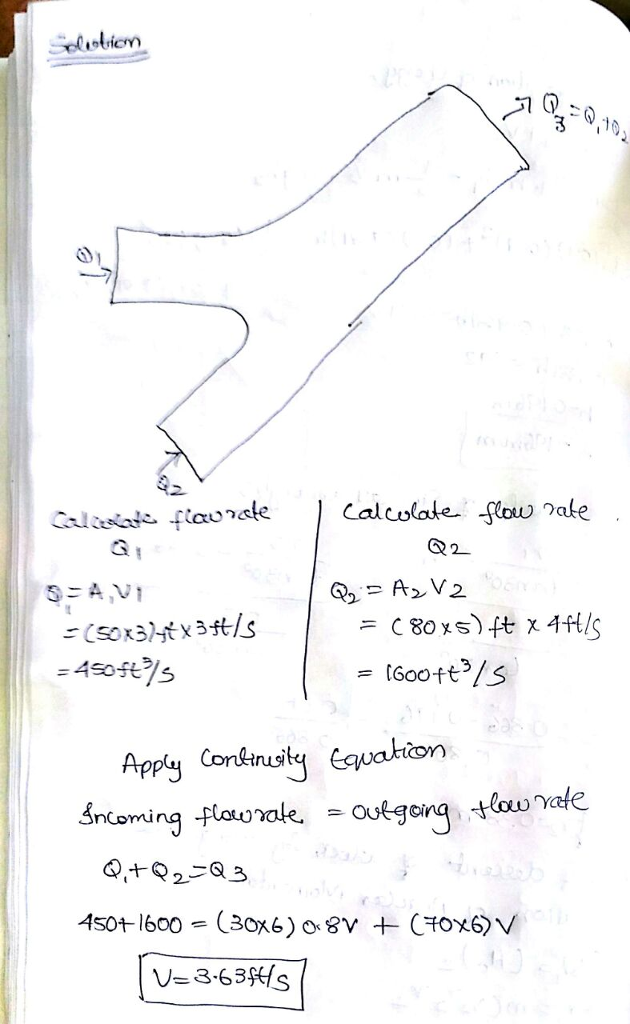 Solution
→ Q3 = Q1+Q2
Q1
→
Q2
Calculate flow rate
Q1
Q1 = A1V1
= (50x3) ft x 3 ft/s
= 450ft³/s
Calculate flow rate
Q2
Q2 = A2 V2
= (80x5) ft x 4ft/s
= 1600ft³/s
Apply Continuity Equation
Incoming flow rate = outgoing flow rate
Q1+Q2=Q3
450+1600 = (30x6) 0.8V + (70x6) V
V=3.63ft/s